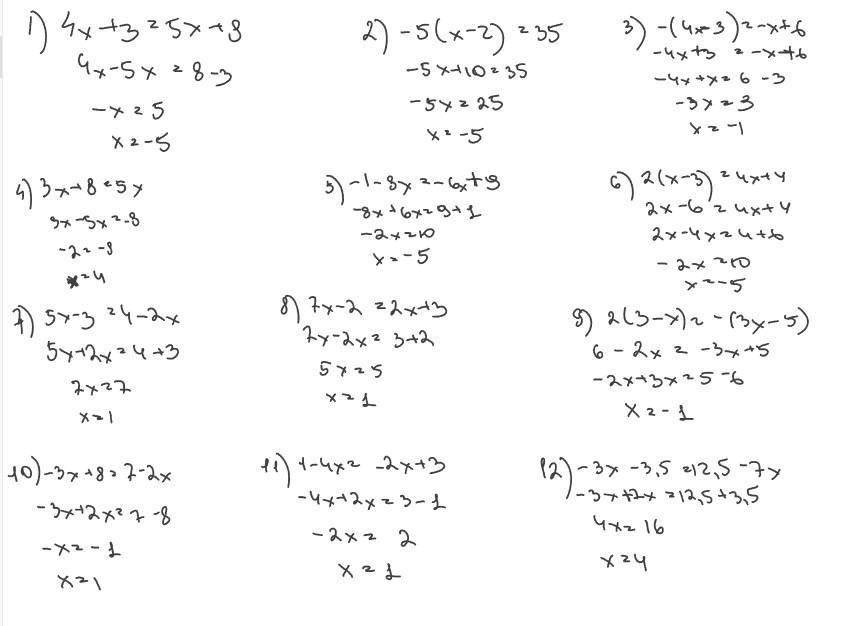 1) 4x+3=5x+8
4x-5x=8-3
-x=5
x=-5
2) -5(x-2)=35
-5x+10=35
-5x=25
x=-5
3) -(4x-3)=-x+6
-4x+3=-x+6
-4x+x=6-3
-3x=3
x=-1
4) 3x+8=5x
3x-5x=-8
-2=-8
x=4
5) -1-8x=-6x+9
-8x+6x=9+1
-2x=10
x=-5
6) 2(x-3)=4x+4
2x-6=4x+4
2x-4x=4+6
-2x=10
x=-5
7) 5x-3=4-2x
5x+2x=4+3
7x=7
x=1
8) 7x-2=2x+3
7x-2x=3+2
5x=5
x=1
9) 2(3-x)=-(3x-5)
6-2x=-3x+5
-2x+3x=5-6
x=-1
10) -3x+8=7-2x
-3x+2x=7-8
-x=-1
x=1
11) 1-4x=-2x+3
-4x+2x=3-1
-2x=2
x=1
12) -3x-3,5=12,5-7x
-3x+7x=12,5+3,5
4x=16
x=4